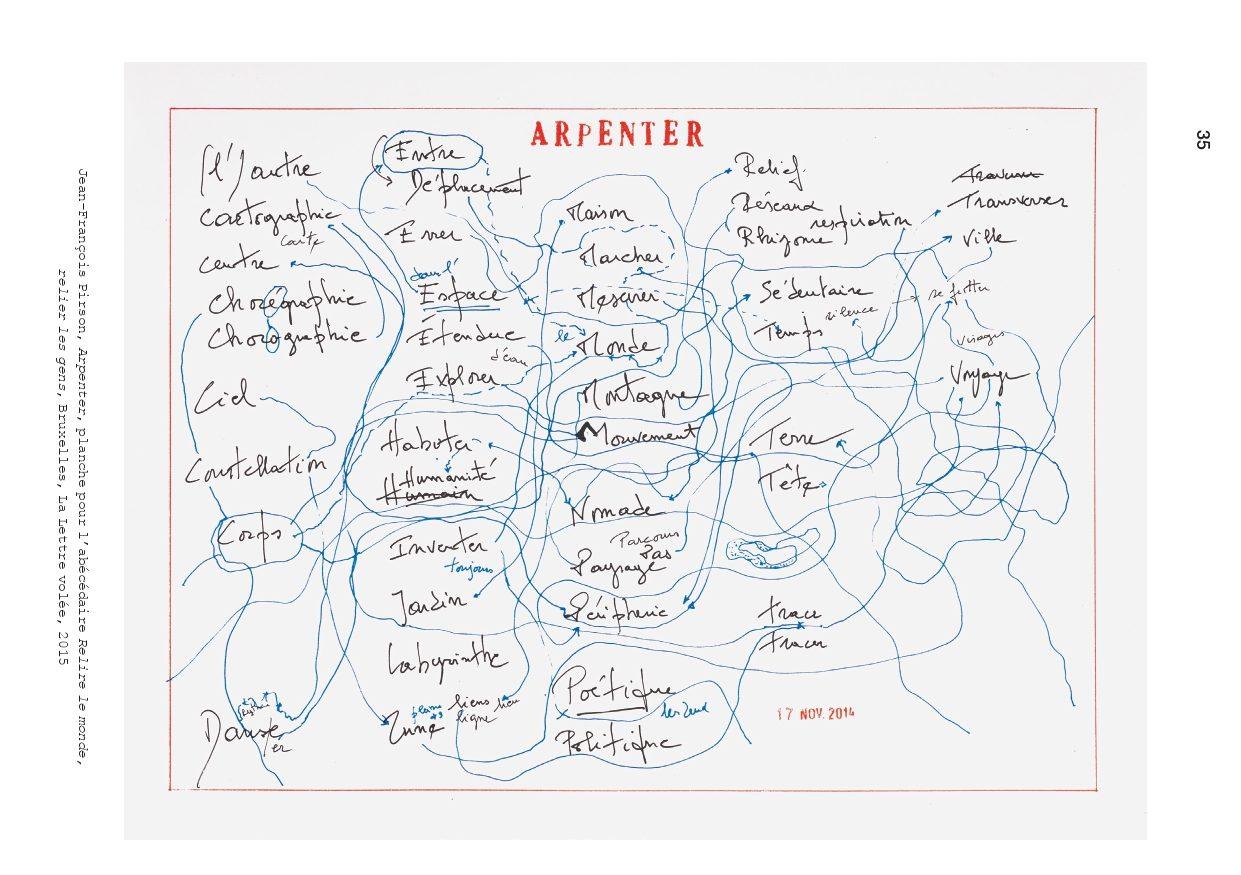 ARPENTER
(l')autre
cartographie
carte
centre
choréographie
chorographie
Ciel
Constellation
Corps
Danse
er
Entre
Déplacement
Errer
dans l'
Espace
Étendue
d'eau
Explorer
Habiter
Humanité
Humain
Inventer
toujours
Jardin
Labyrinthe
liens lieu
ligne
pleine
Lune
Maison
Marcher
Mesurer
le
Monde
Montagne
Mouvement
Nomade
Parcours
Pas
Paysage
Périphérie
Poétique
les deux
Politique
Relief
Réseaux
respiration
Rhizome
Sédentaire
silence
Temps
Terre
Tête
trace
tracer
Transverser
Ville
visages
Voyage
17 NOV. 2014
35
Jean-François Pirson, Arpenter, planche pour l'abécédaire Relire le monde,
relier les gens, Bruxelles, La Lettre volée, 2015